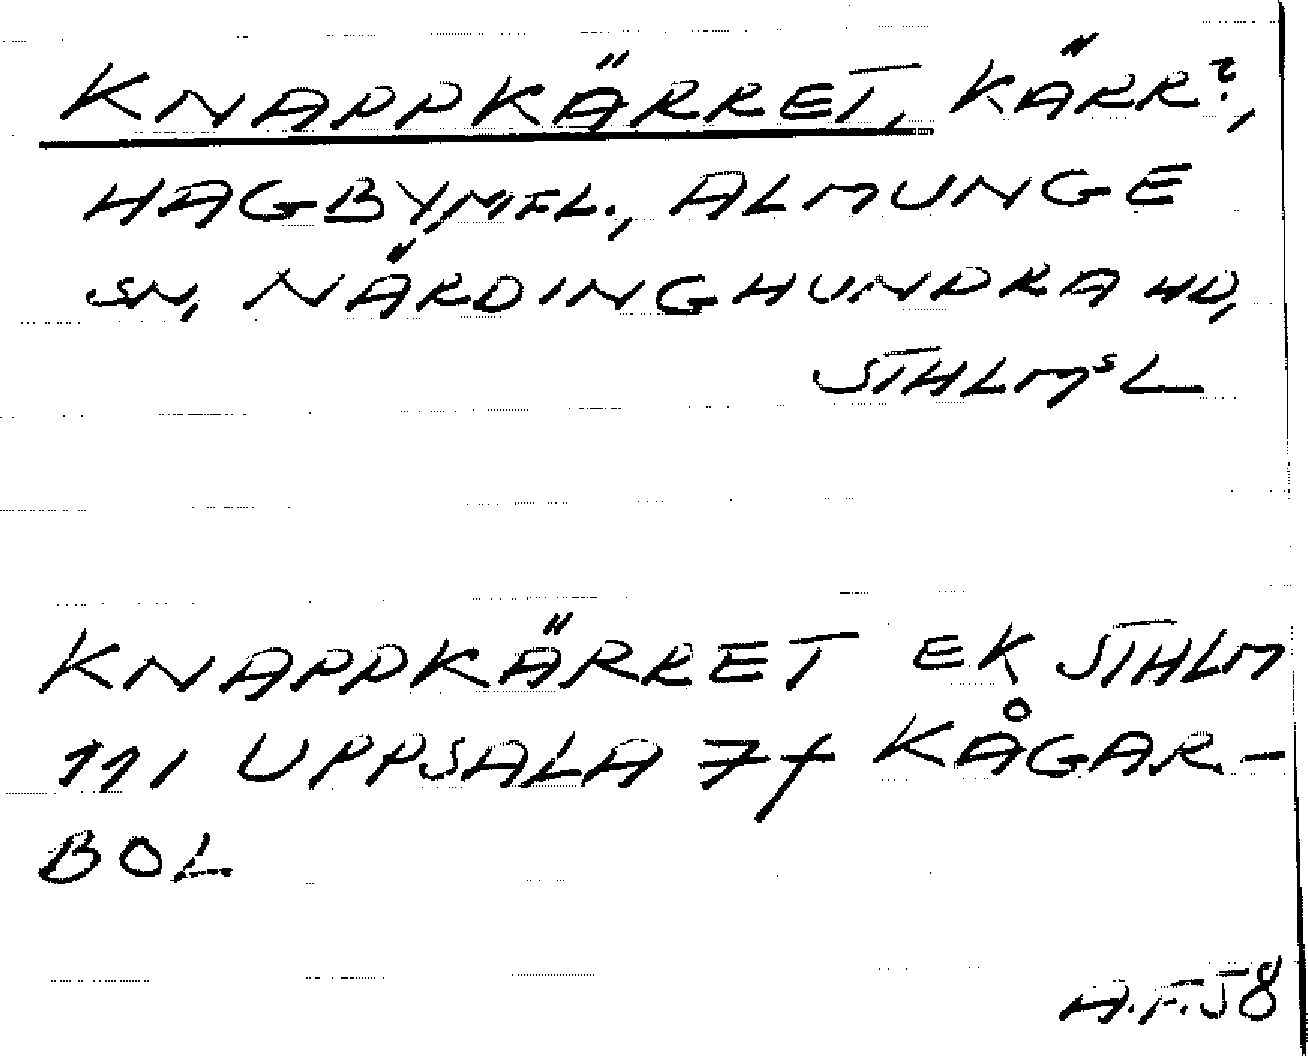 KNAPPKÄRRET, KÄRR?,
HAGBY, M FL., ALMUNGE
SN, NÄRDINGHUNDRA HD,
STHLMS L
KNAPPKÄRRET EK STHLM
111 UPPSALA 7f KÅGAR-
BOL
A.F. 58